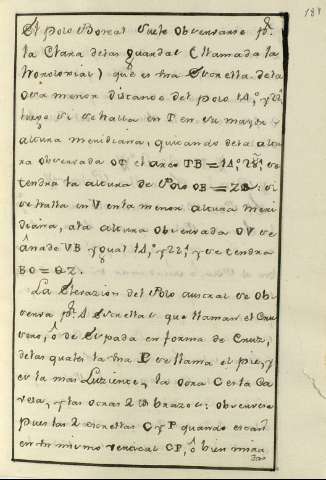 El Polo Boreal suele observarse pr.
la Clara de las guardas (llamada la
horolorial) que es una Estrella de la
osa menor distance del polo 14,° y 28,'
luego si se halla en T en su mayor
altura meridiana, quitando de la altu
ra observada OT el arco TB = 14,° 28,' se
tendra la altura de Polo OB = ZQ: si
se halla en V en la menor altura meri
diana, a la altura observada OV se
añade VB ygual 14,° y 28,' y se tendra
BO = QZ.
La Elevazion del Polo austral se ob
serva pr. 4 Estrellas que llaman el Cru
sero, ô de Espada en forma de Cruz,
de las quales la una P se llama el pie, y
es la mas Luziente, la otra C es la Ca
vesa, y las otras 2 brazos: observense
pues las 2 estrellas C y P quando esten
en un mismo vertical CP, ô bien mira